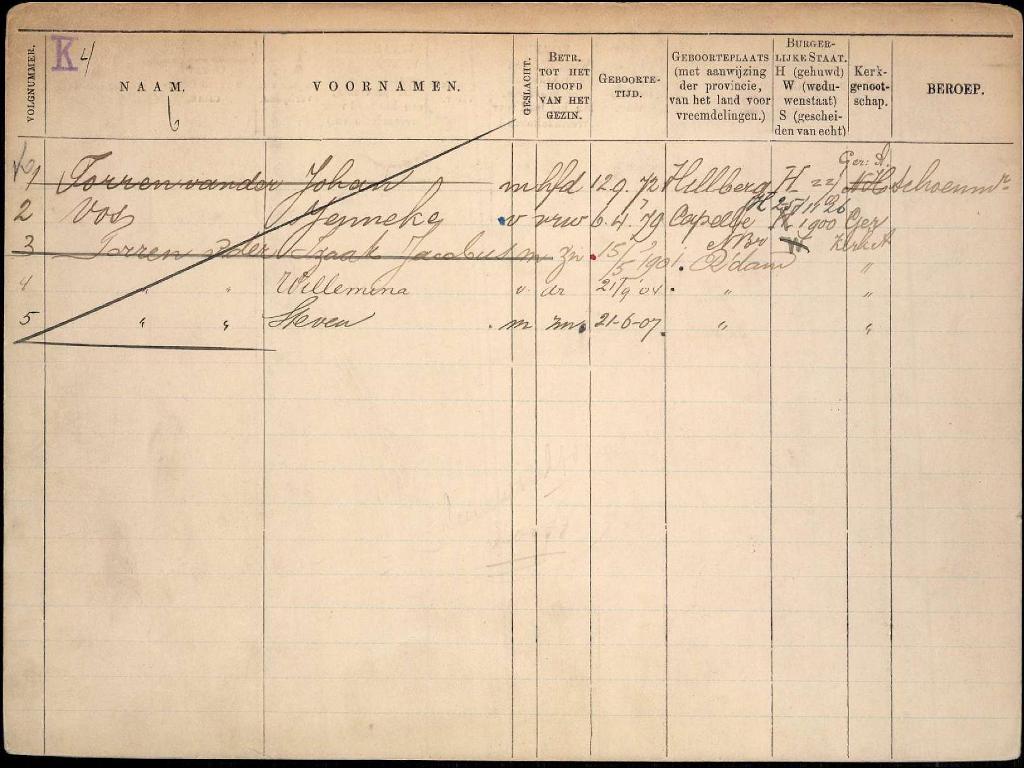 K 4
VOLGNUMMER. NAAM. VOORNAMEN. GESLACHT. BETR. TOT HET HOOFD VAN HET GEZIN. GEBOORTE-TIJD. GEBOORTEPLAATS (met aanwijzing der provincie, van het land voor vreemdelingen.) BURGER-LIJKE STAAT. H (gehuwd) W (wedu-wenstaat) S (geschei-den van echt) Kerk-genoot-schap. BEROEP.
6
Ger: K.
1 Torren van der Johan m hfd 12.9.'72 Hillberg H 22/ NH schoenmr
H 25/11 26
2 Vos Jenneke v vrw 6.4.'79 Capelle H 1900 Ger
N Br W Kerk
3 Torren v der Izaak Jacobus m zn 15/5 1901. R'dam "
4 " " Willemina v. dr 21/9 '04. " "
5 " " Steven m zn. 21-6-07. " "